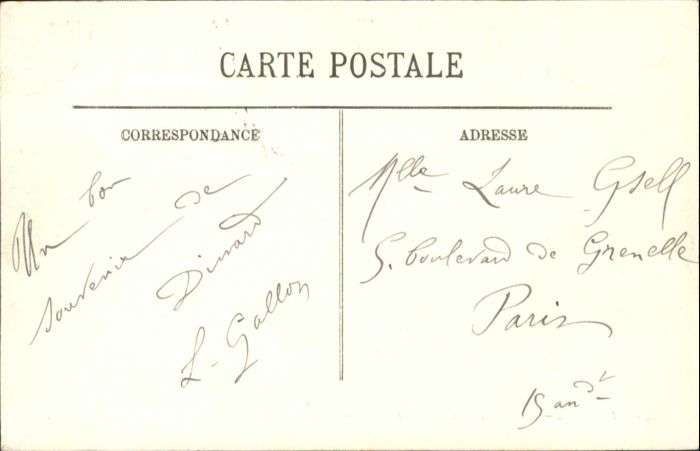 CARTE POSTALE
CORRESPONDANCE
Un bon
souvenir de
Dinard
L. Gallon
ADRESSE
Mlle Laure Gsell
5. boulevard de Grenelle
Paris
15